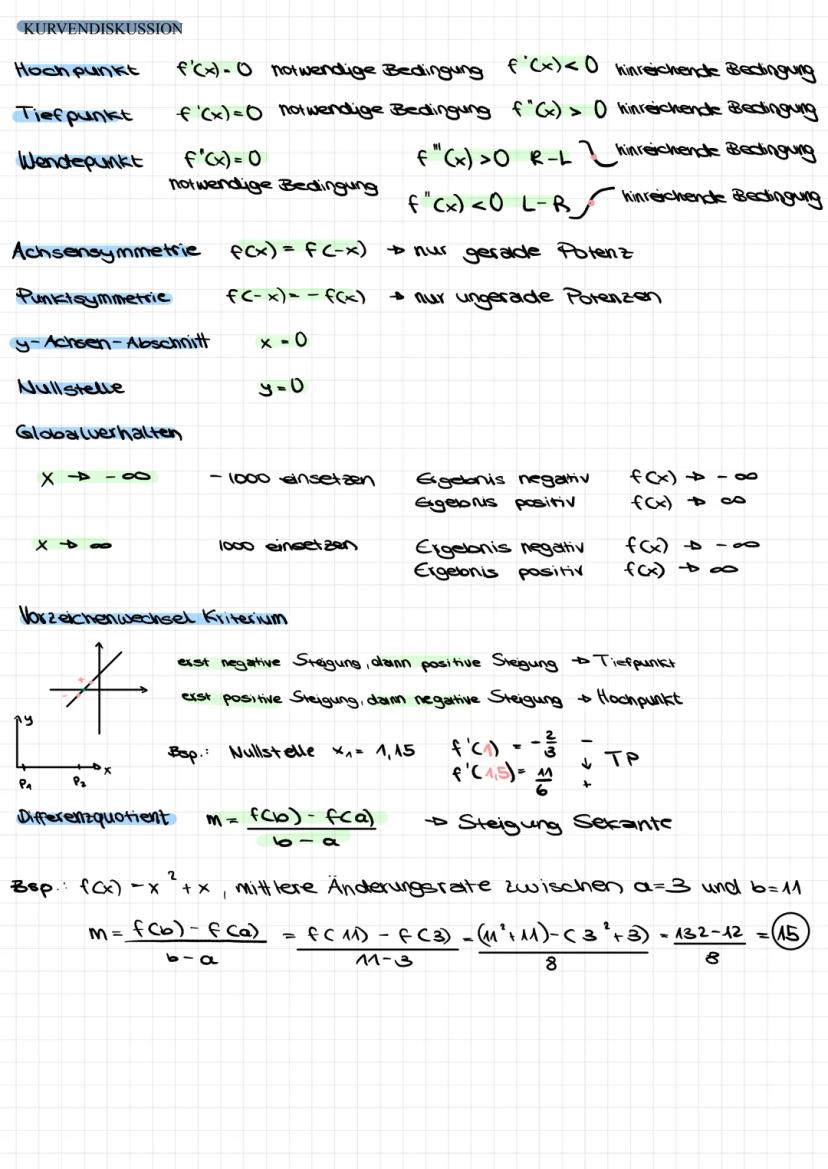 KURVENDISKUSSION
Hochpunkt f'(x) = 0 notwendige Bedingung f''(x) < 0 hinreichende Bedingung
Tiefpunkt f'(x) = 0 notwendige Bedingung f''(x) > 0 hinreichende Bedingung
Wendepunkt f''(x) = 0 f'''(x) > 0 R-L hinreichende Bedingung
notwendige Bedingung
f''(x) < 0 L-R hinreichende Bedingung
Achsensymmetrie f(x) = f(-x) → nur gerade Potenz
Punktsymmetrie f(-x) = -f(x) → nur ungerade Potenzen
y-Achsen-Abschnitt x = 0
Nullstelle y = 0
Globalverhalten
x → -∞ -1000 einsetzen Ergebnis negativ f(x) → -∞
Ergebnis positiv f(x) → ∞
x → ∞ 1000 einsetzen Ergebnis negativ f(x) → -∞
Ergebnis positiv f(x) → ∞
Vorzeichenwechsel Kriterium
erst negative Steigung, dann positive Steigung → Tiefpunkt
erst positive Steigung, dann negative Steigung → Hochpunkt
y
x
P₁ P₂
Bsp.: Nullstelle x₁ = 1,15 f'(1) = -2/3 - ↓ + TP
f'(1,5) = 11/6
Differenzquotient m = (f(b) - f(a))/(b - a) → Steigung Sekante
Bsp.: f(x) = x² + x, mittlere Änderungsrate zwischen a=3 und b=11
m = (f(b) - f(a))/(b - a) = (f(11) - f(3))/(11-3) = ((11²+11)-(3²+3))/8 = (132-12)/8 = 15